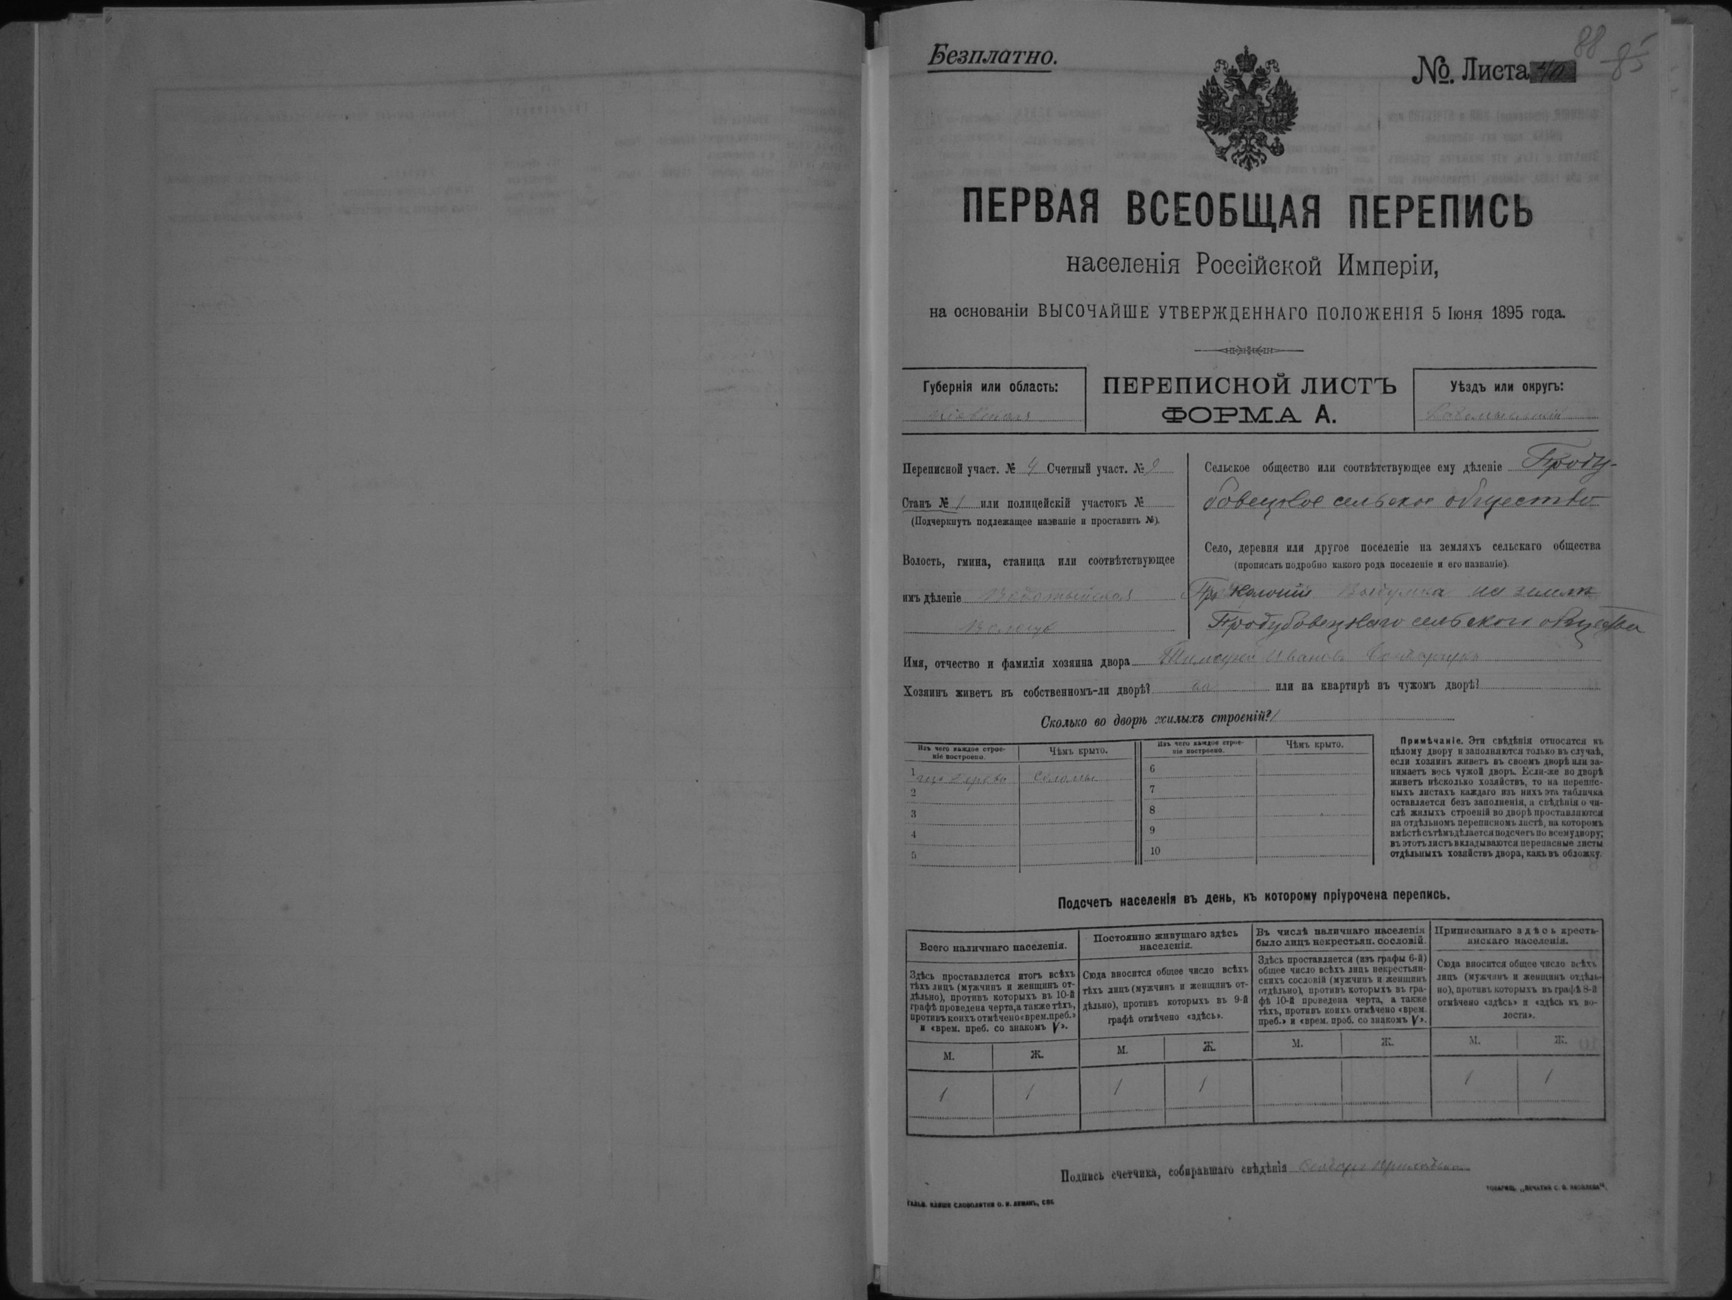 88
85
Безплатно.
№. Листа
ПЕРВАЯ ВСЕОБЩАЯ ПЕРЕПИСЬ
населенія Россійской Имперіи,
на основаніи ВЫСОЧАЙШЕ УТВЕРЖДЕННАГО ПОЛОЖЕНІЯ 5 Іюня 1895 года.
Губернія или область:
Кіевская
ПЕРЕПИСНОЙ ЛИСТЪ
ФОРМА А.
Уѣздъ или округъ:
Переписной участ. № 4 Счетный участ. №
Станъ № 1 или полицейскій участокъ №
(Подчеркнуть подлежащее названіе и проставить №).
Волость, гмина, станица или соотвѣтствующее
имъ дѣленіе
Сельское общество или соотвѣтствующее ему дѣленіе
сельское общество
Село, деревня или другое поселеніе на земляхъ сельскаго общества
(прописать подробно какого рода поселеніе и его названіе).
на земляхъ
сельского общества
Имя, отчество и фамилія хозяина двора
Хозяинъ живетъ въ собственномъ-ли дворѣ? или на квартирѣ въ чужомъ дворѣ?
Сколько во дворѣ жилыхъ строеній? 1
Изъ чего каждое строе-
ніе построено.
Чѣмъ крыто.
1 изъ дерева соломы
2
3
4
5
Изъ чего каждое строе-
ніе построено.
Чѣмъ крыто.
6
7
8
9
10
Примѣчаніе. Эти свѣдѣнія относятся къ
цѣлому двору и заполняются только въ случаѣ,
если хозяинъ живетъ въ своемъ дворѣ или за-
нимаетъ весь чужой дворъ. Если-же во дворѣ
живетъ нѣсколько хозяйствъ, то на перепис-
ныхъ листахъ каждаго изъ нихъ эта табличка
оставляется безъ заполненія, а свѣдѣнія о чи-
слѣ жилыхъ строеній во дворѣ проставляются
на отдѣльномъ переписномъ листѣ, на которомъ
вмѣстѣ съ тѣмъ дѣлается подсчетъ по всему двору;
въ этотъ листъ вкладываются переписные листы
отдѣльныхъ хозяйствъ двора, какъ въ обложку.
Подсчетъ населенія въ день, къ которому пріурочена перепись.
Всего наличнаго населенія.
Здѣсь проставляется итогъ всѣхъ
тѣхъ лицъ (мужчинъ и женщинъ от-
дѣльно), противъ которыхъ въ 10-й
графѣ проведена черта, а также тѣхъ,
противъ коихъ отмѣчено «врем. преб.»
и «врем. преб. со знакомъ V».
Постоянно живущаго здѣсь
населенія.
Сюда вносится общее число всѣхъ
тѣхъ лицъ (мужчинъ и женщинъ от-
дѣльно), противъ которыхъ въ 9-й
графѣ отмѣчено «здѣсь».
Въ числѣ наличнаго населенія
было лицъ некрестьян. сословій.
Здѣсь проставляется (изъ графы 6-й)
общее число всѣхъ лицъ некрестьян-
скихъ сословій (мужчинъ и женщинъ
отдѣльно), противъ которыхъ въ гра-
фѣ 10-й проведена черта, а также
тѣхъ, противъ коихъ отмѣчено «врем.
преб.» и «врем. преб. со знакомъ V».
Приписаннаго здѣсь кресть-
янскаго населенія.
Сюда вносится общее число всѣхъ
лицъ (мужчинъ и женщинъ отдѣль-
но), противъ которыхъ въ графѣ 8-й
отмѣчено «здѣсь» и «здѣсь къ во-
лости».
М. Ж. М. Ж. М. Ж. М. Ж.
1 1 1 1 1 1
Подпись счетчика, собиравшаго свѣдѣнія